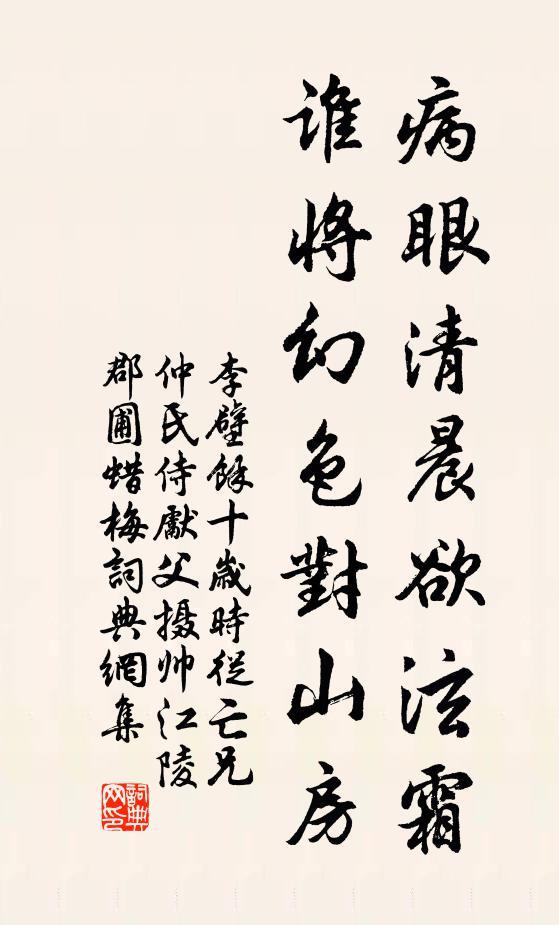 病眼清晨欲泫霜
谁將幻色對山房
李壁餘十歲時從亡兄
仲氏侍獻父摄帅江陵
郡圃蜡梅詞典網集
詞典
网印